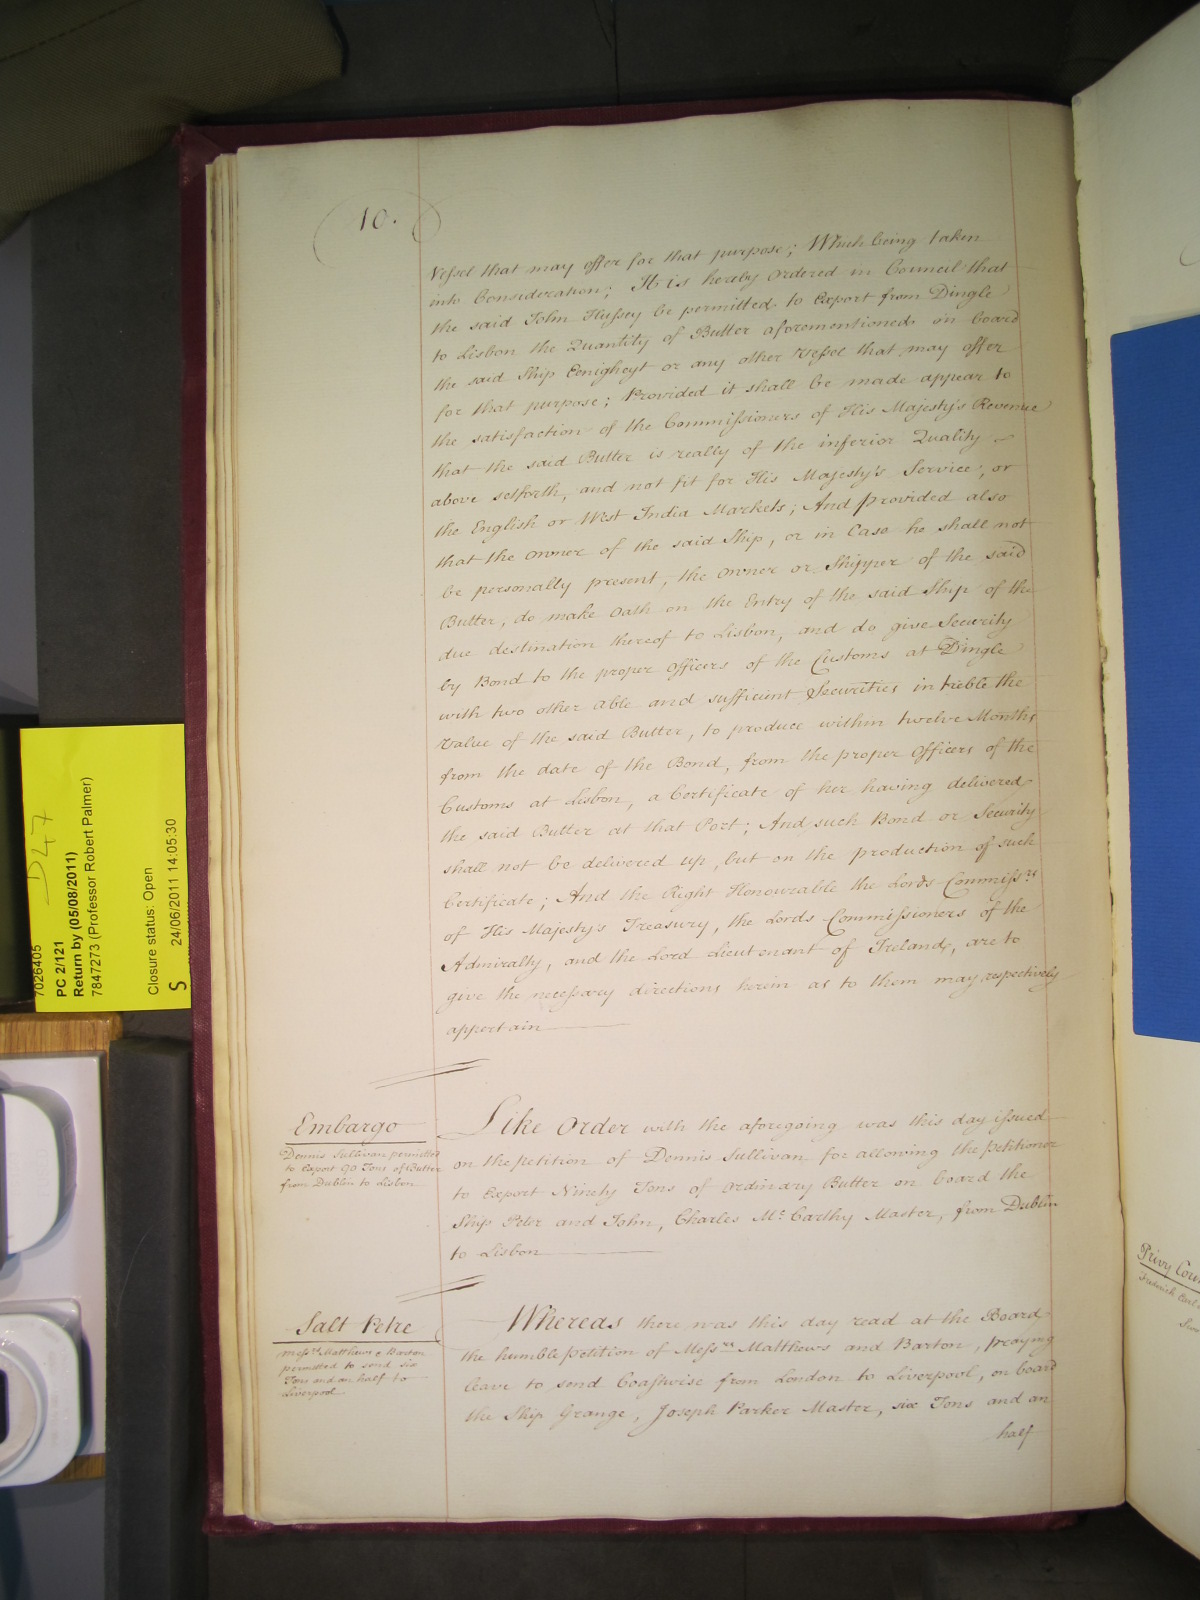 10.
Vessel that may offer for that purpose; Which being taken
into Consideration; It is hereby Ordered in Council that
the said John Hussey be permitted to Export from Dingle
to Lisbon the Quantity of Butter aforementioned on board
the said Ship Eenigheyt or any other Vessel that may offer
for that purpose; Provided it shall be made appear to
the satisfaction of the Commissioners of His Majesty's Revenue
that the said Butter is really of the inferior Quality
above setforth, and not fit for His Majesty's Service, or
the English or West India Markets; And provided also
that the Owner of the said Ship, or in Case he shall not
be personally present, the Owner or Shipper of the said
Butter, do make Oath on the Entry of the said Ship of the
due destination thereof to Lisbon, and do give Security
by Bond to the proper Officers of the Customs at Dingle
with two other able and sufficient Securities in treble the
Value of the said Butter, to produce within twelve Months
from the date of the Bond, from the proper Officers of the
Customs at Lisbon, a Certificate of her having delivered
the said Butter at that Port; And such Bond or Security
shall not be delivered up, but on the production of such
Certificate; And the Right Honourable the Lords Commissrs
of His Majesty's Treasury, the Lords Commissioners of the
Admiralty, and the Lord Lieutenant of Ireland, are to
give the necessary directions herein as to them may respectively
appertain
Embargo
Dennis Sullivan permitted
to Export 90 Tons of Butter
from Dublin to Lisbon
Like Order with the aforegoing was this day issued
on the petition of Dennis Sullivan for allowing the petitioner
to Export Ninety Tons of Ordinary Butter on board the
Ship Peter and John, Charles Mc Carthy Master, from Dublin
to Lisbon
Salt Petre
Messrs Matthews & Barton
permitted to send six
Tons and an half to
Liverpool
Whereas there was this day read at the Board
the humble Petition of Messrs Matthews and Barton, praying
leave to send Coastwise from London to Liverpool, on board
the Ship Grange, Joseph Parker Master, six Tons and an
half
D47
7026405
PC 2/121
Return by (05/08/2011)
7847273 (Professor Robert Palmer)
Closure status: Open
S 24/06/2011 14:05:30
Privy
Frederick